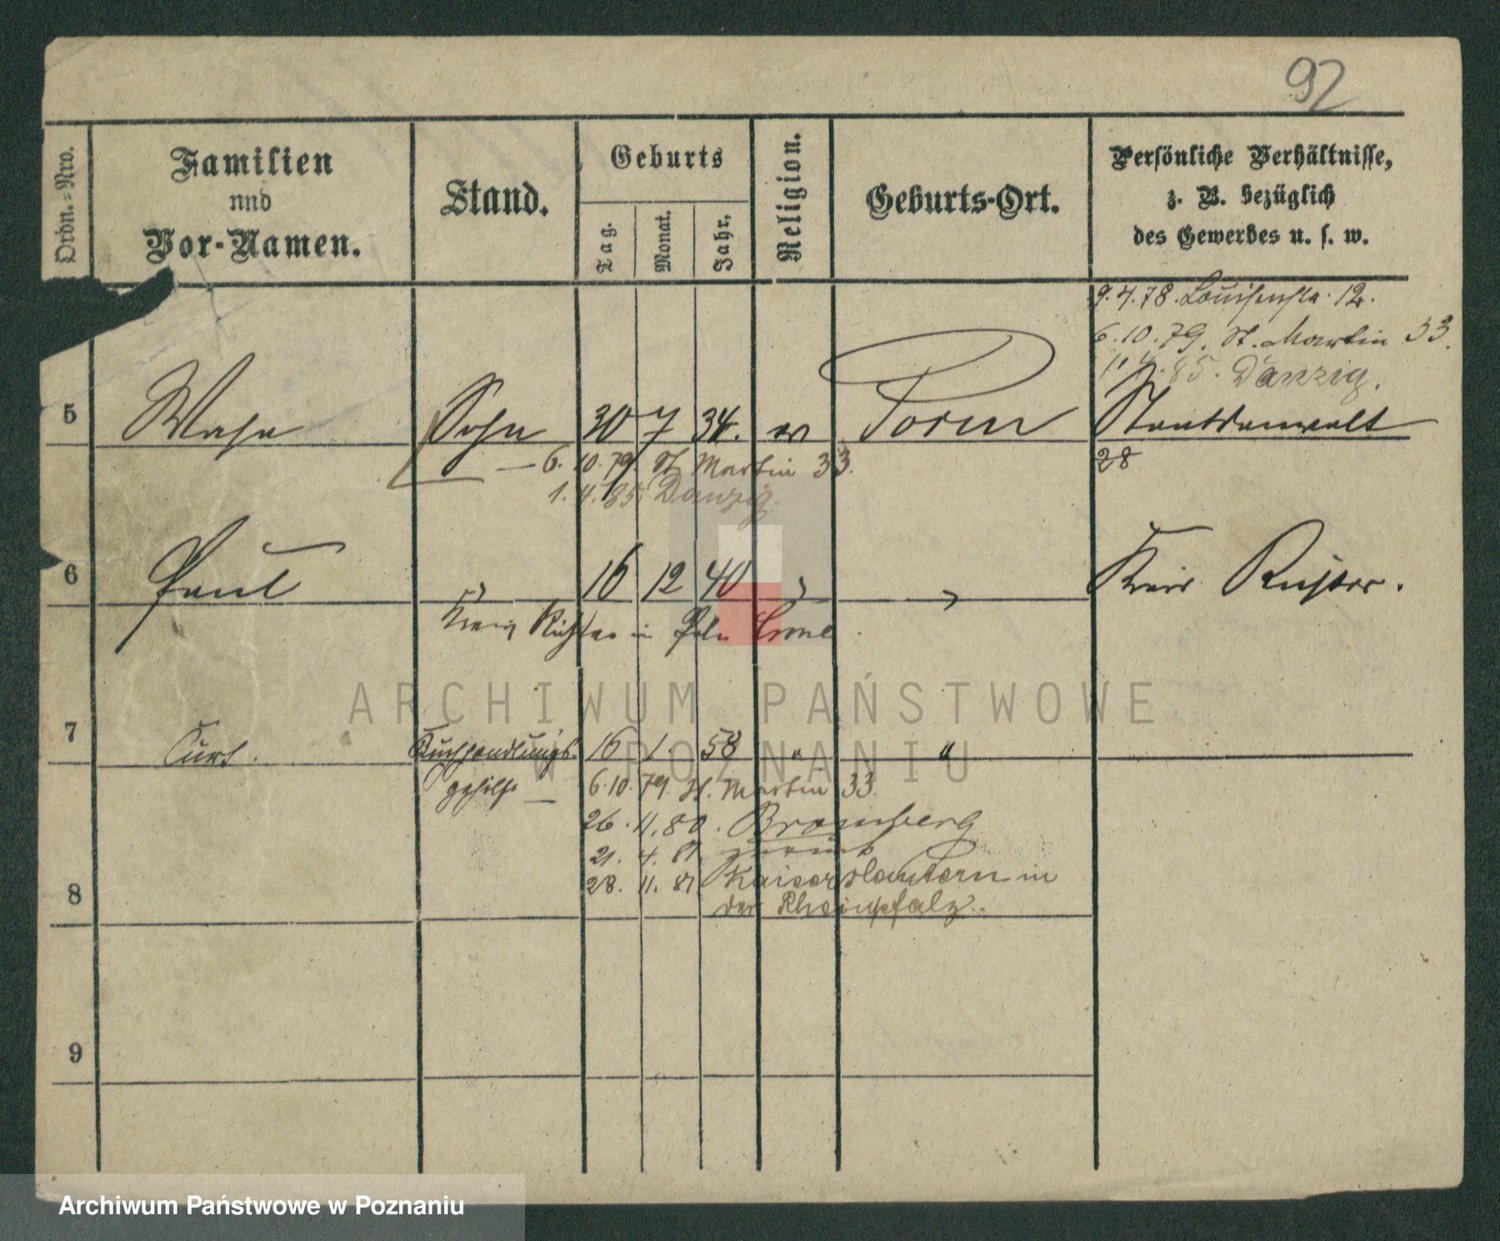 92
Ordn.-Nro.
Familien
und
Vor-Namen.
Stand.
Geburts
Tag.
Monat.
Jahr.
Religion.
Geburts-Ort.
Persönliche Verhältnisse,
z. B. bezüglich
des Gewerbes u. s. w.
9.4.78. Louisenstr. 12.
6.10.79. St. Martin 33.
85. Danzig.
5
Sohn 30 7 34. ev Posen Staatsanwalt
6.10.79. St Martin 33.
28
1.4.85 Danzig.
6
Paul " 16 12 40 " " Kreis Richter.
Kreis Richter in Poln Crone.
7
Curt. Buchhandlungs- 16 1. 58 " "
gehilfe —
6.10.79. St. Martin 33.
26.11.80. Bromberg
21. 4. 81. zurück
28. 11. 81 Kaiserslautern in
der Rheinpfalz.
8
9
ARCHIWUM PAŃSTWOWE
W POZNANIU
Archiwum Państwowe w Poznaniu